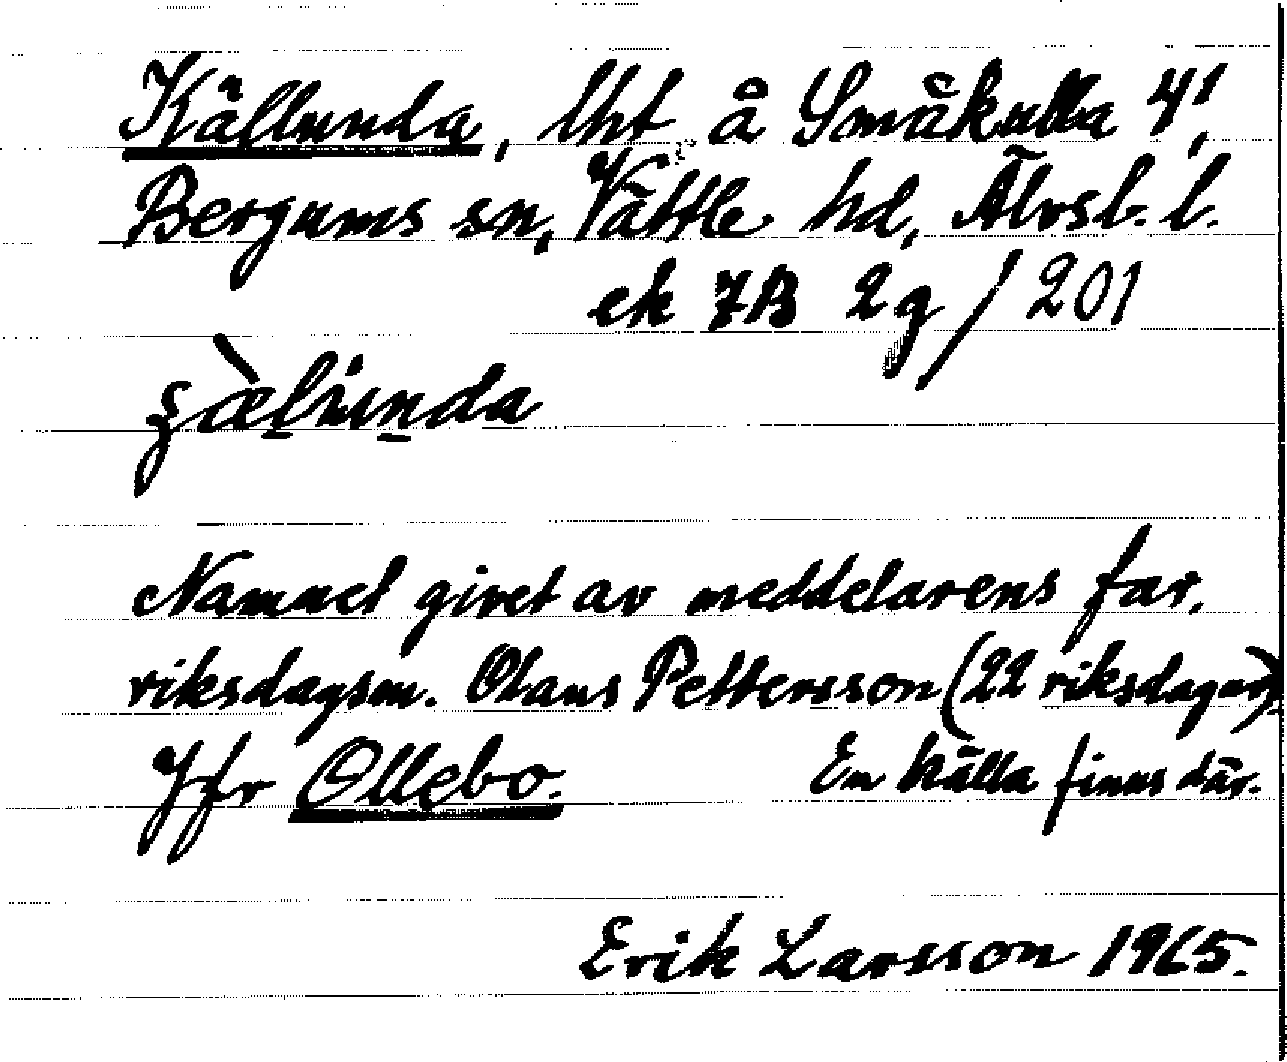 Källunda, lht å Småkulla 4¹,
Bergums sn, Vättle hd, Älvsb. l.
ek 7B 2g/201
Namnet givet av meddelarens far,
riksdagsm. Olaus Pettersson (22 riksdagar)
Jfr Ollebo. En källa finns där.
Erik Larsson 1965.